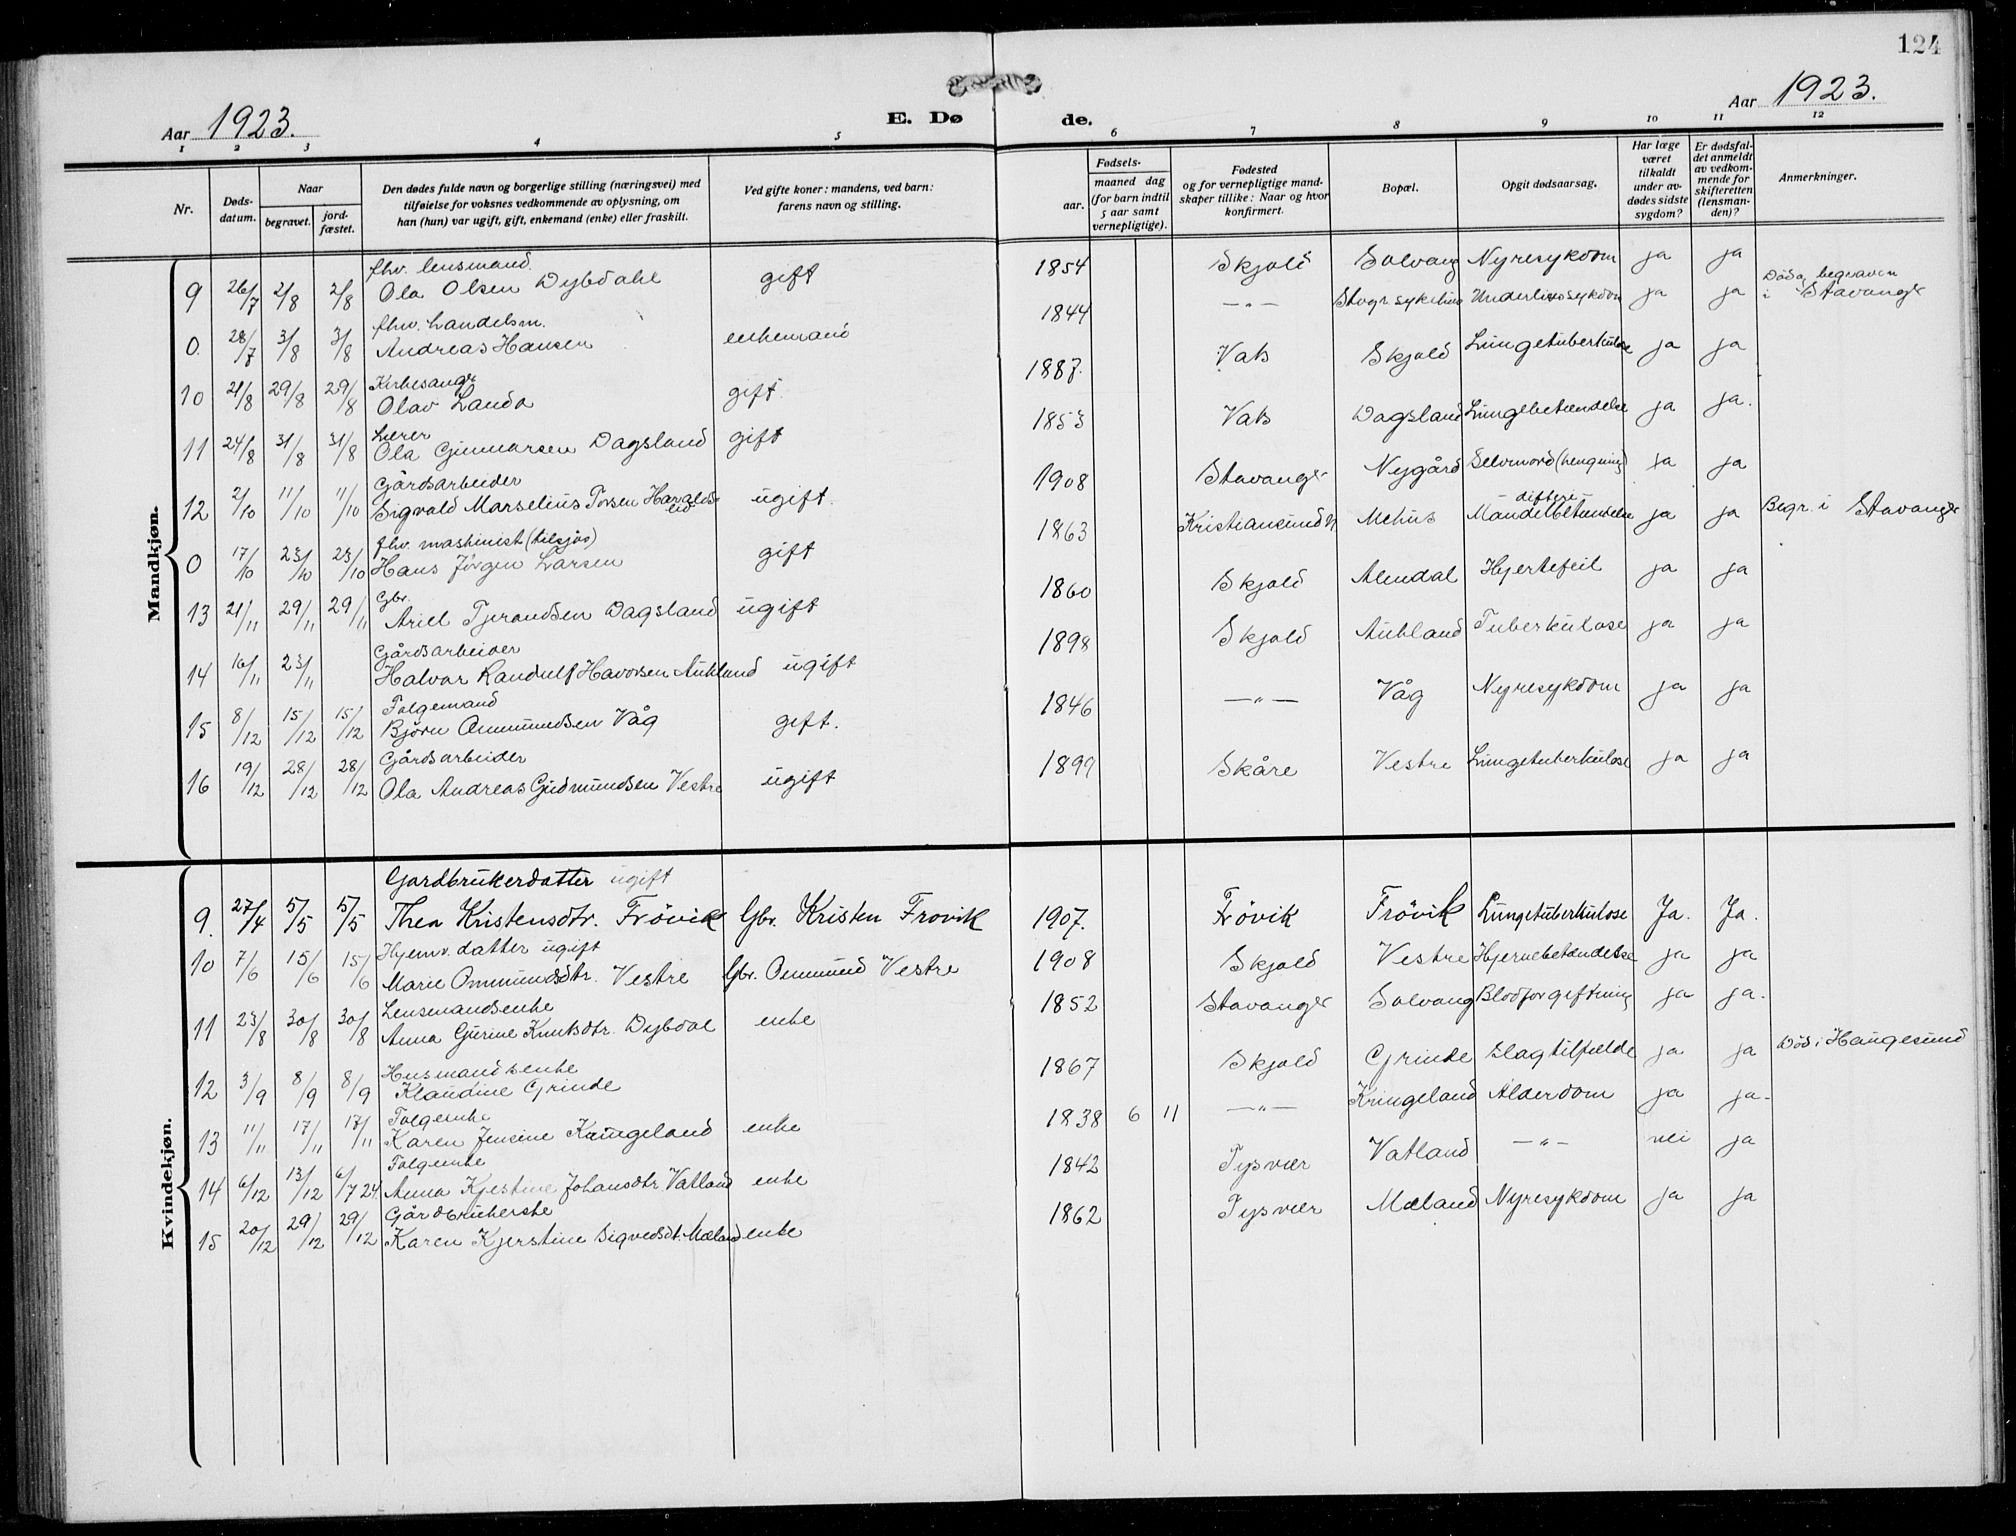 124
Aar 1923.
E. Dø de.
Aar 1923.
1 2 3 4 5 6 7 8 9 10 11 12
Nr.
Døds-datum.
Naar
begravet.
jord-fæstet.
Den dødes fulde navn og borgerlige stilling (næringsvei) med tilføielse for voksnes vedkommende av oplysning, om han (hun) var ugift, gift, enkemand (enke) eller fraskilt.
Ved gifte koner: mandens, ved barn: farens navn og stilling.
Fødsels-
aar.
maaned dag
(for barn indtil 5 aar samt vernepligtige).
Fødested og for vernepligtige mand-skaper tillike: Naar og hvor konfirmert.
Bopæl.
Opgit dødsaarsag.
Har læge været tilkaldt under av-dødes sidste sygdom?
Er dødsfal-det anmeldt av vedkom-mende for skifteretten (lensman-den)?
Anmerkninger.
Mandkjøn.
fhv. lensmand.
9 26/7 2/8 2/8 Ola Olsen Dybdahl gift 1854 Skjold Solvang Nyresykdom ja ja
fhv. handelsm.
0. 28/7 3/8 3/8 Andreas Hansen enkemand 1844 —"— Stvgr. sykehus Underlivssykdom ja ja Död og begraven i Stavanger
Kirkesanger
10 21/8 29/8 29/8 Olav Landa gift 1887. Vats Skjold Lungetuberkulose ja ja
Lærer
11 24/8 31/8 31/8 Ola Gunnarsen Dagsland gift 1853 Vats Dagsland Lungebetændelse ja ja.
Gårdsarbeider
12 2/10 11/10 11/10 Sigvald Marselius Torsen Haraldseid ugift. 1908 Stavanger Nygård Selvmord (hengning) ja ja
fhv. maskinist (tilsjøs)
0 17/10 23/10 23/10 Hans Jörgen Larsen gift 1863 Kristiansund N Mehus difteri Mandelbetændelse ja ja Begr. i Stavanger
Gbr.
13 21/11 29/11 29/11 Ariel Tjerandsen Dagsland ugift 1860 Skjold Alendal Hjertefeil ja ja
Gårdsarbeider
14 16/11 23/11 Halvar Randulf Havorsen Aukland ugift 1898 Skjold Aukland Tuberkulose ja ja
Folgemand
15 8/12 15/12 15/12 Björn Ommundsen Våg gift. 1846 —"— Våg Nyresykdom ja ja
Gårdsarbeider
16 19/12 28/12 28/12 Ola Andreas Gudmundsen Vestre ugift 1899 Skåre Vestre Lungetuberkulose ja ja
Kvindekjøn.
Gardbrukerdatter ugift
9. 27/4 5/5 5/5 Thea Kristensdtr. Frövik Gbr. Kristen Frovik 1907. Frövik Frövik Lungetuberkulose Ja. Ja.
Hjemv. datter ugift
10 7/6 15/6 15/6 Marie Ommundsdtr. Vestre Gbr. Ommund Vestre 1908 Skjold Vestre Hjernebetændelse ja ja
Lensmandsenke
11 23/8 30/8 30/8 Anna Gurine Knutsdtr. Dybdal enke 1852 Stavanger Solvang Blodforgiftning ja ja.
Husmandsenke
12 3/9 8/9 8/9 Klaudine Grinde 1867 Skjold Grinde Slagtilfælde ja ja Död i Haugesund
Folgeenke
13 11/11 17/11 17/11 Karen Jensine Kringeland enke 1838 6 11 —"— Kringeland Alderdom ja ja.
Folgeenke
14 6/12 13/12 6/7 24. Anna Kjestine Johansdtr. Vatland enke 1842 Tysvær Vatland —"— nei ja
Gårdbrukerske
15 20/12 29/12 29/12 Karen Kjerstine Sigvedsdt. Mæland enke 1862 Tysvær Mæland Nyresykdom ja ja